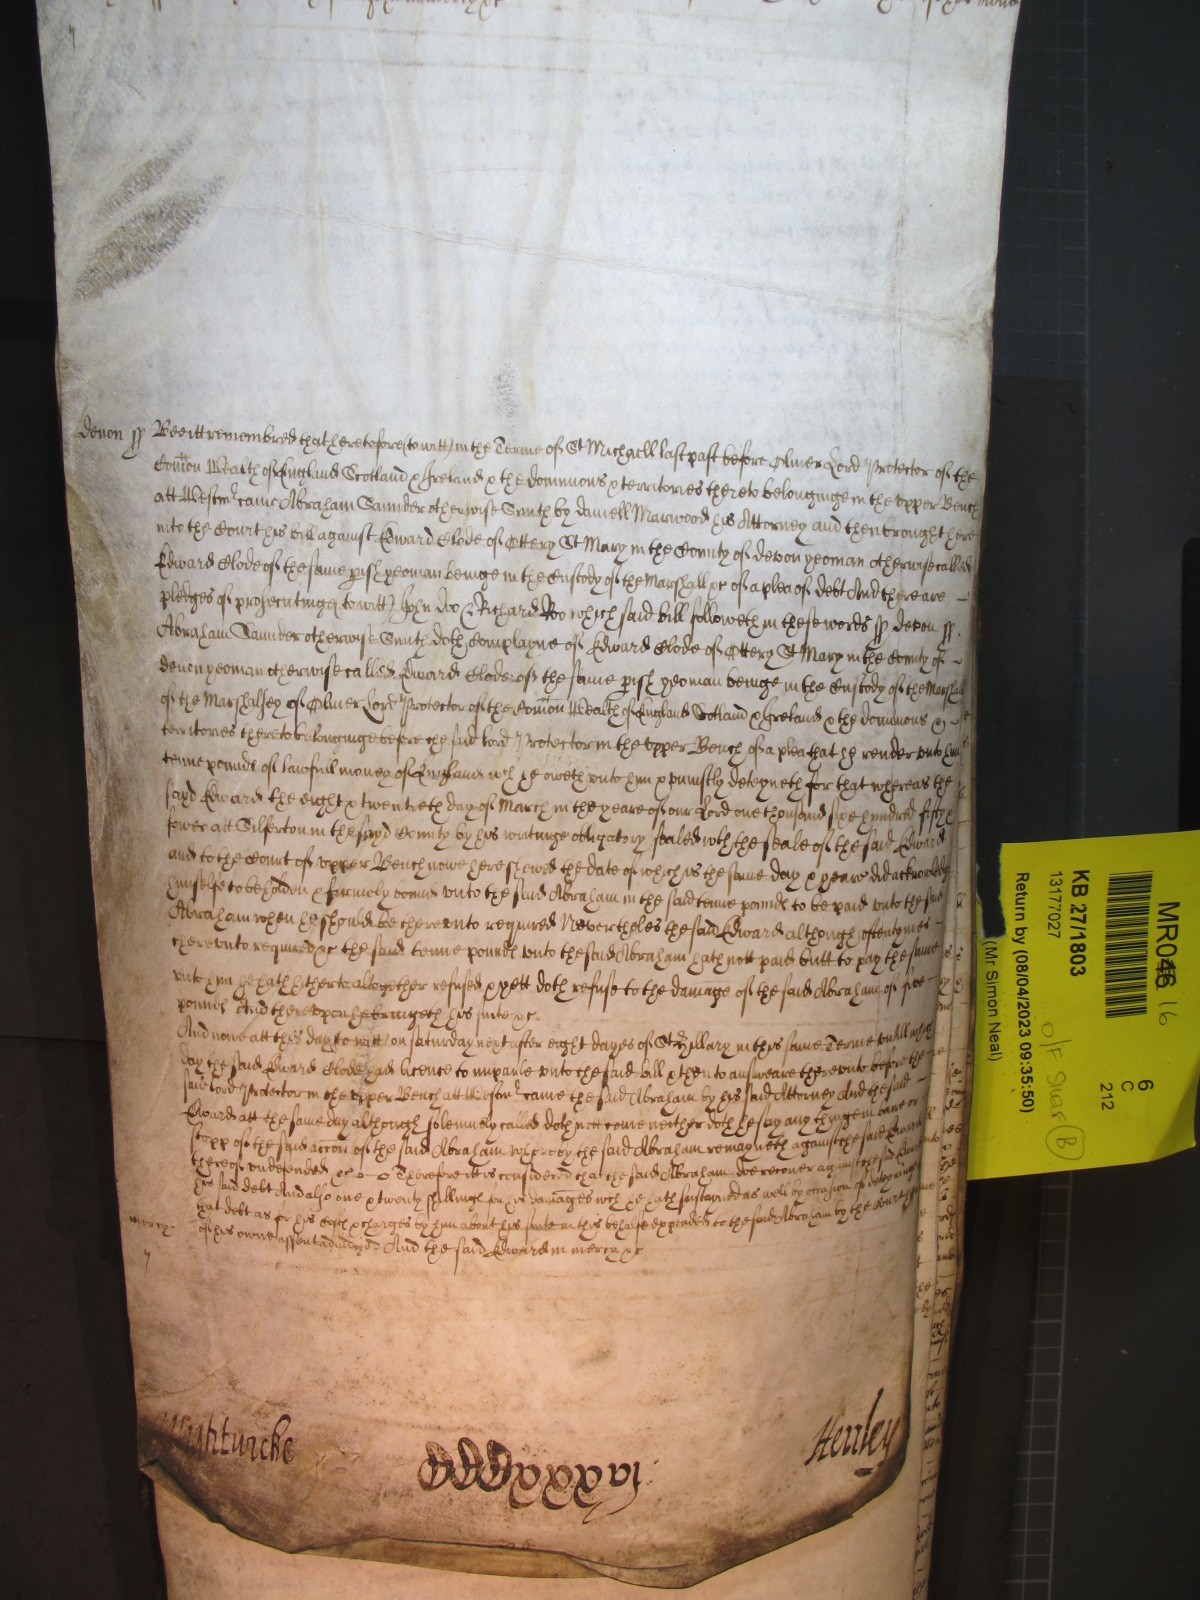 Devon ss Bee itt remembred that heretofore (to witt) in the Terme of St Michaell last past before Oliver Lord Protector of the
Com̄on Wealth of England Scotland & Ireland & the dominions & territories thereto belonginge in the vpper Bench
att Westmr came Abraham Saunder otherwise Smith by Daniell Marwood his Attorney and then brought here
into the Court his bill against Edward Clode of Ottery St Mary in the County of Devon yeoman otherwise called
Edward Clode of the same pish yeoman beinge in the Custody of the Marshall &c of a plea of debt And there are
pledges of prosecutinge (to witt) John Doo & Richard Roo which said bill followeth in these words ss Devon ss
Abraham Saunder otherwise Smith doth complayne of Edward Clode of Ottery St Mary in the County of
Devon yeoman otherwise called Edward Clode of the same pish yeoman beinge in the Custody of the Marshall
of the Marshalsey of Oliver Lord Protector of the Com̄on Wealth of England Scotland & Ireland & the dominions &
territories thereto belonginge before the said Lord Protector in the vpper Bench of a plea that he render vnto him
tenne pounds of lawfull money of England wch he oweth vnto him & vniustly deteyneth for that whereas the
sayd Edward the eight & twentieth day of March in the yeare of our Lord one thousand sixe hundred fifty
fower att Silferton in the sayd County by his writinge obligatory sealed with the seale of the said Edward
and to the Court of vpper Bench nowe here shewed the date of which is the same day & yeare did acknowledge
himselfe to be holden & firmely bound vnto the said Abraham in the said tenne pounds to be paid vnto the said
Abraham when he should be therevnto required Neverthelesse the said Edward although oftentymes
therevnto required &c the said tenne pounds vnto the said Abraham hath nott paid butt to pay the same
vnto him he hath hitherto altogether refused & yett doth refuse to the damage of the said Abraham of five
pounds And therevpon he bringeth his suite &c
And nowe att this day to witt on Saturday next after eight dayes of St Hillary in this same Terme vntill which
day the said Edward Clode had licence to imparle vnto the said bill & then to answeare therevnto before the
said Lord Protector in the vpper Bench att Westmr came the said Abraham by his said Attorney And the said
Edward att the same day although solemnely called doth nott come neither doth he say any thinge in barre or
stopp of the said accōn of the said Abraham whereby the said Abraham remayneth against the said Edward
thereof vndefended &c Therefore it is considered that the said Abraham doe recover against the said Edward
his said debt And also one & twenty shillings for his damages wch he hath susteyned as well by occasion of deteyninge
that debt as for his costs & charges by him about his suite in this behalfe expended to the said Abraham by the Court here
of his owne assent adiudged And the said Edward in mercy &c
mercy
Henley
MR046 16
KB 27/1803
13177027
Return by (08/04/2023 09:35:50)
(Mr Simon Neal)
6
C
212
B